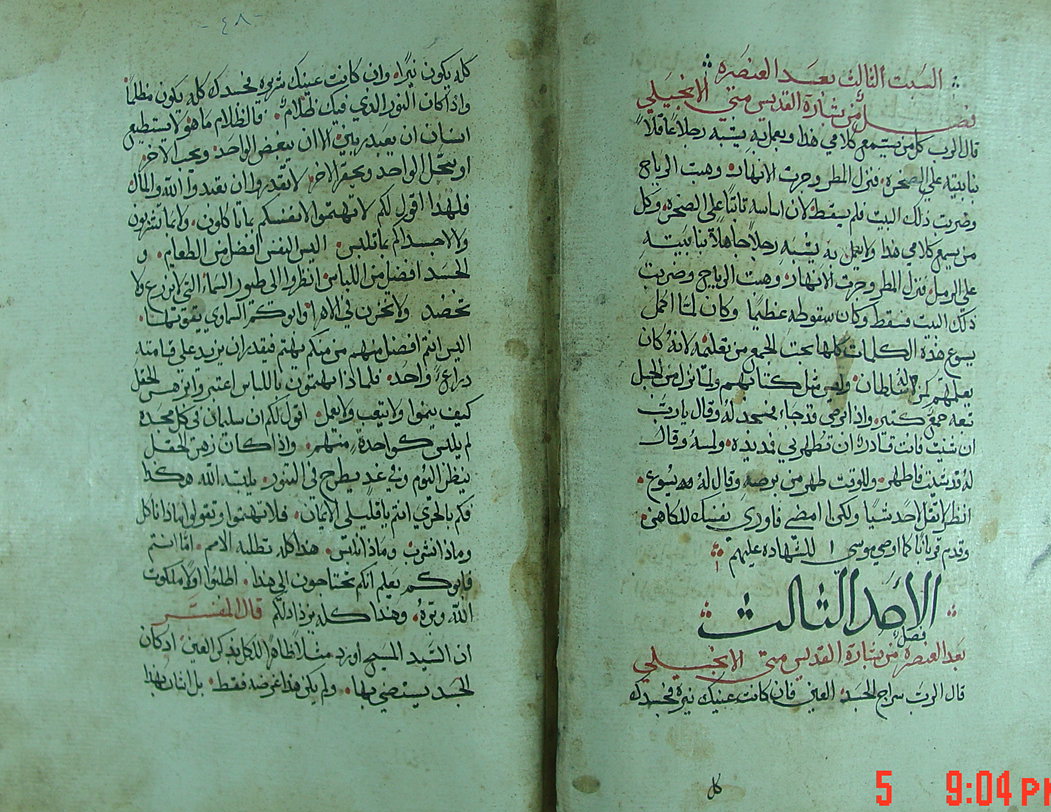 السبت الثالث بعد العنصره
فصل من بشارة القديس متي الانجيلي
قال الرب كل من يسمع كلامي هذا ويعمل به يشبه رجلا عاقلا
بنا بيته علي الصخره فنزل المطر وجرت الانهار وهبت الرياح
وضربت ذلك البيت فلم يسقط لان اساسه ثابتا علي الصخره وكل
من يسمع كلامي هذا ولا يعمل به يشبه رجلا جاهلا بنا بيته
علي الرمل فنزل المطر وجرت الانهار وهبت الرياح وضربت
ذلك البيت فسقط وكان سقوطه عظيما وكان لما اكمل
يسوع هذه الكلمات كلها بهت الجمع من تعليمه لانه كان
يعلمهم كمن له سلطان وليس مثل كتابهم ولما نزل من الجبل
تبعه جمع كثير واذا ابرص قد جاء فسجد له وقال يا رب
ان شيت فانت قادر ان تطهرني فمد يده ولمسه وقال
له قد شيت فاطهر وللوقت طهر من برصه وقال له يسوع
انظر لا تقل لاحد شيا ولكن امضي فاوري نفسك للكاهن
وقدم قربانا كما اوصي موسي للشهاده عليهم
الاحد الثالث
بعد العنصره فصل من بشارة القديس متي الانجيلي
قال الرب سراج الجسد العين فان كانت عينك نيره فجسدك
كل
-٤٨-
كله يكون نيرا وان كانت عينك شريره فجسدك كله يكون مظلما
واذا كان النور الذي فيك ظلام فالظلام ما هو لا يستطيع
انسان ان يعبد ربين الا ان يبغض الواحد ويحب الاخر
او يجل الواحد ويحقر الاخر لا تقدروا ان تعبدوا الله والمال
فلهذا اقول لكم لا تهتموا لانفسكم بما تاكلون ولا بما تشربون
ولا لاجسادكم بما تلبس اليس النفس افضل من الطعام و
الجسد افضل من اللباس انظروا الي طيور السماء التي لا تزرع ولا
تحصد ولا تخزن في الاهرا وابوكم السماوي يقوتها
اليس انتم افضل منهم من منكم يهتم فيقدر ان يزيد علي قامته
ذراعا واحد فلماذا تهتمون باللباس اعتبروا بزهر الحقل
كيف ينموا ولا يتعب ولا يعمل اقول لكم ان سليمان في كل مجده
لم يلبس كواحدة منهم واذا كان زهر الحقل
ينظر اليوم وفي غد يطرح في التنور يلبسه الله هكذا
فكم بالحري انتم يا قليلي الايمان فلا تهتموا وتقولوا ماذا ناكل
وماذا نشرب وماذا نلبس هذا كله تطلبه الامم اما انتم
فابوكم يعلم انكم تحتاجون الي هذا اطلبوا اولا ملكوت
الله وبره وهذا كله يزداد لكم قال المفسر
ان السيد المسيح اورد مثلا ظاهرا للكل بذكر العين اذ كان
الجسد يستضي بها ولم يكن هذا غرضه فقط بل انسان بهذا
5 9:04 PM